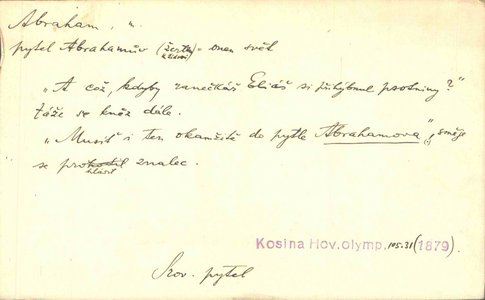 Abraham, m.
pytel Abrahamův (žertem) = onen svět
„A což, kdyby Eliáš si přihýbnul psotniny?"
táže se kněz dále.
„Musit i ten okamžitě do pytle Abrahamova", směje
se prohodil znalec.
hlásil
Kosina Hov. olymp. 105.31 (1879).
Srov. pytel